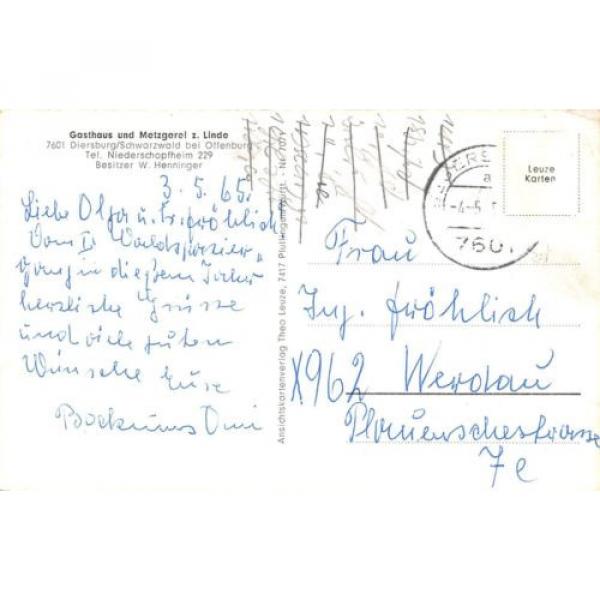 Gasthaus und Metzgerei z. Linde
7601 Diersburg/Schwarzwald bei Offenburg
Tel. Niederschopfheim 229
Besitzer W. Henninger
3.5.65.
Liebe Olga u. Ir. Fröhlich
Vom II Waldspazier„
gang in diesem Jahr
herzliche Grüsse
und viele guten
Wünsche Eure
Omi
Ansichtskartenverlag Theo Leuze, 7417 Pfullingen/Württ. - Nr. 1011
Leuze
Karten
-4.-5.
760
Frau
Ing. Fröhlich
X962 Werdau
Plauenschestrasse
7e